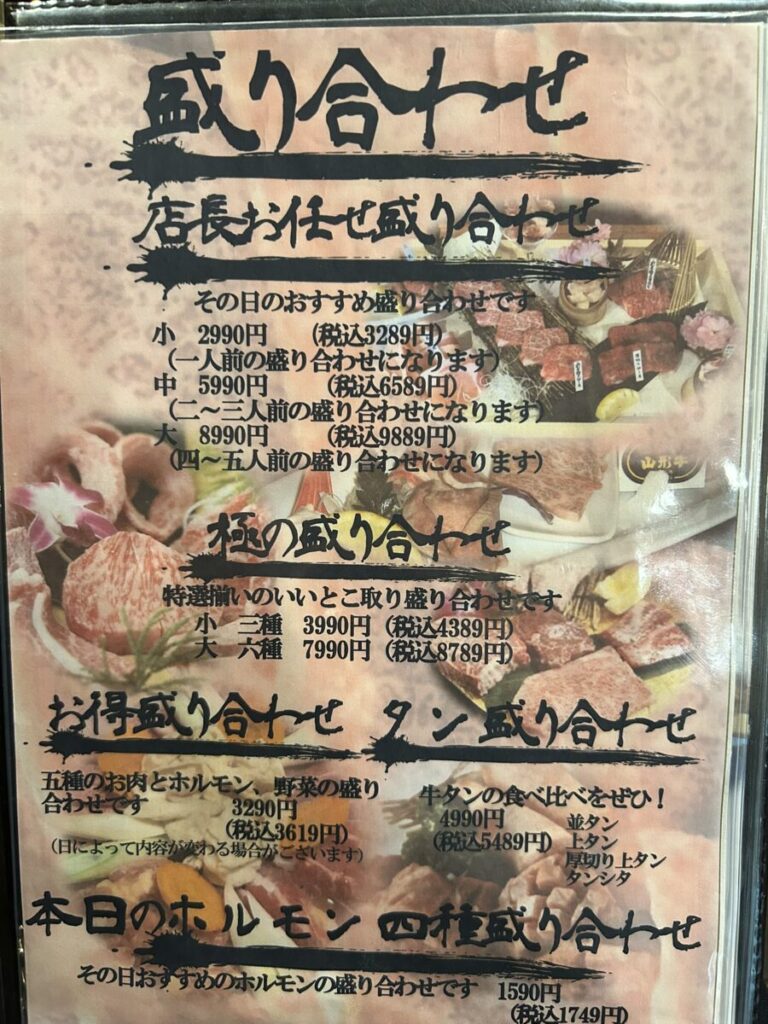 盛り合わせ
店長お任せ盛り合わせ
その日のおすすめ盛り合わせです
小 2990円 (税込3289円)
(一人前の盛り合わせになります)
中 5990円 (税込6589円)
(二〜三人前の盛り合わせになります)
大 8990円 (税込9889円)
(四〜五人前の盛り合わせになります)
山形牛
極の盛り合わせ
特選揃いのいいとこ取り盛り合わせです
小 三種 3990円 (税込4389円)
大 六種 7990円 (税込8789円)
お得盛り合わせ
五種のお肉とホルモン、野菜の盛り
合わせです 3290円
(税込3619円)
(日によって内容が変わる場合がございます)
タン盛り合わせ
牛タンの食べ比べをぜひ！
4990円 並タン
(税込5489円) 上タン
厚切り上タン
タンシタ
本日のホルモン 四種盛り合わせ
その日おすすめのホルモンの盛り合わせです 1590円
(税込1749円)